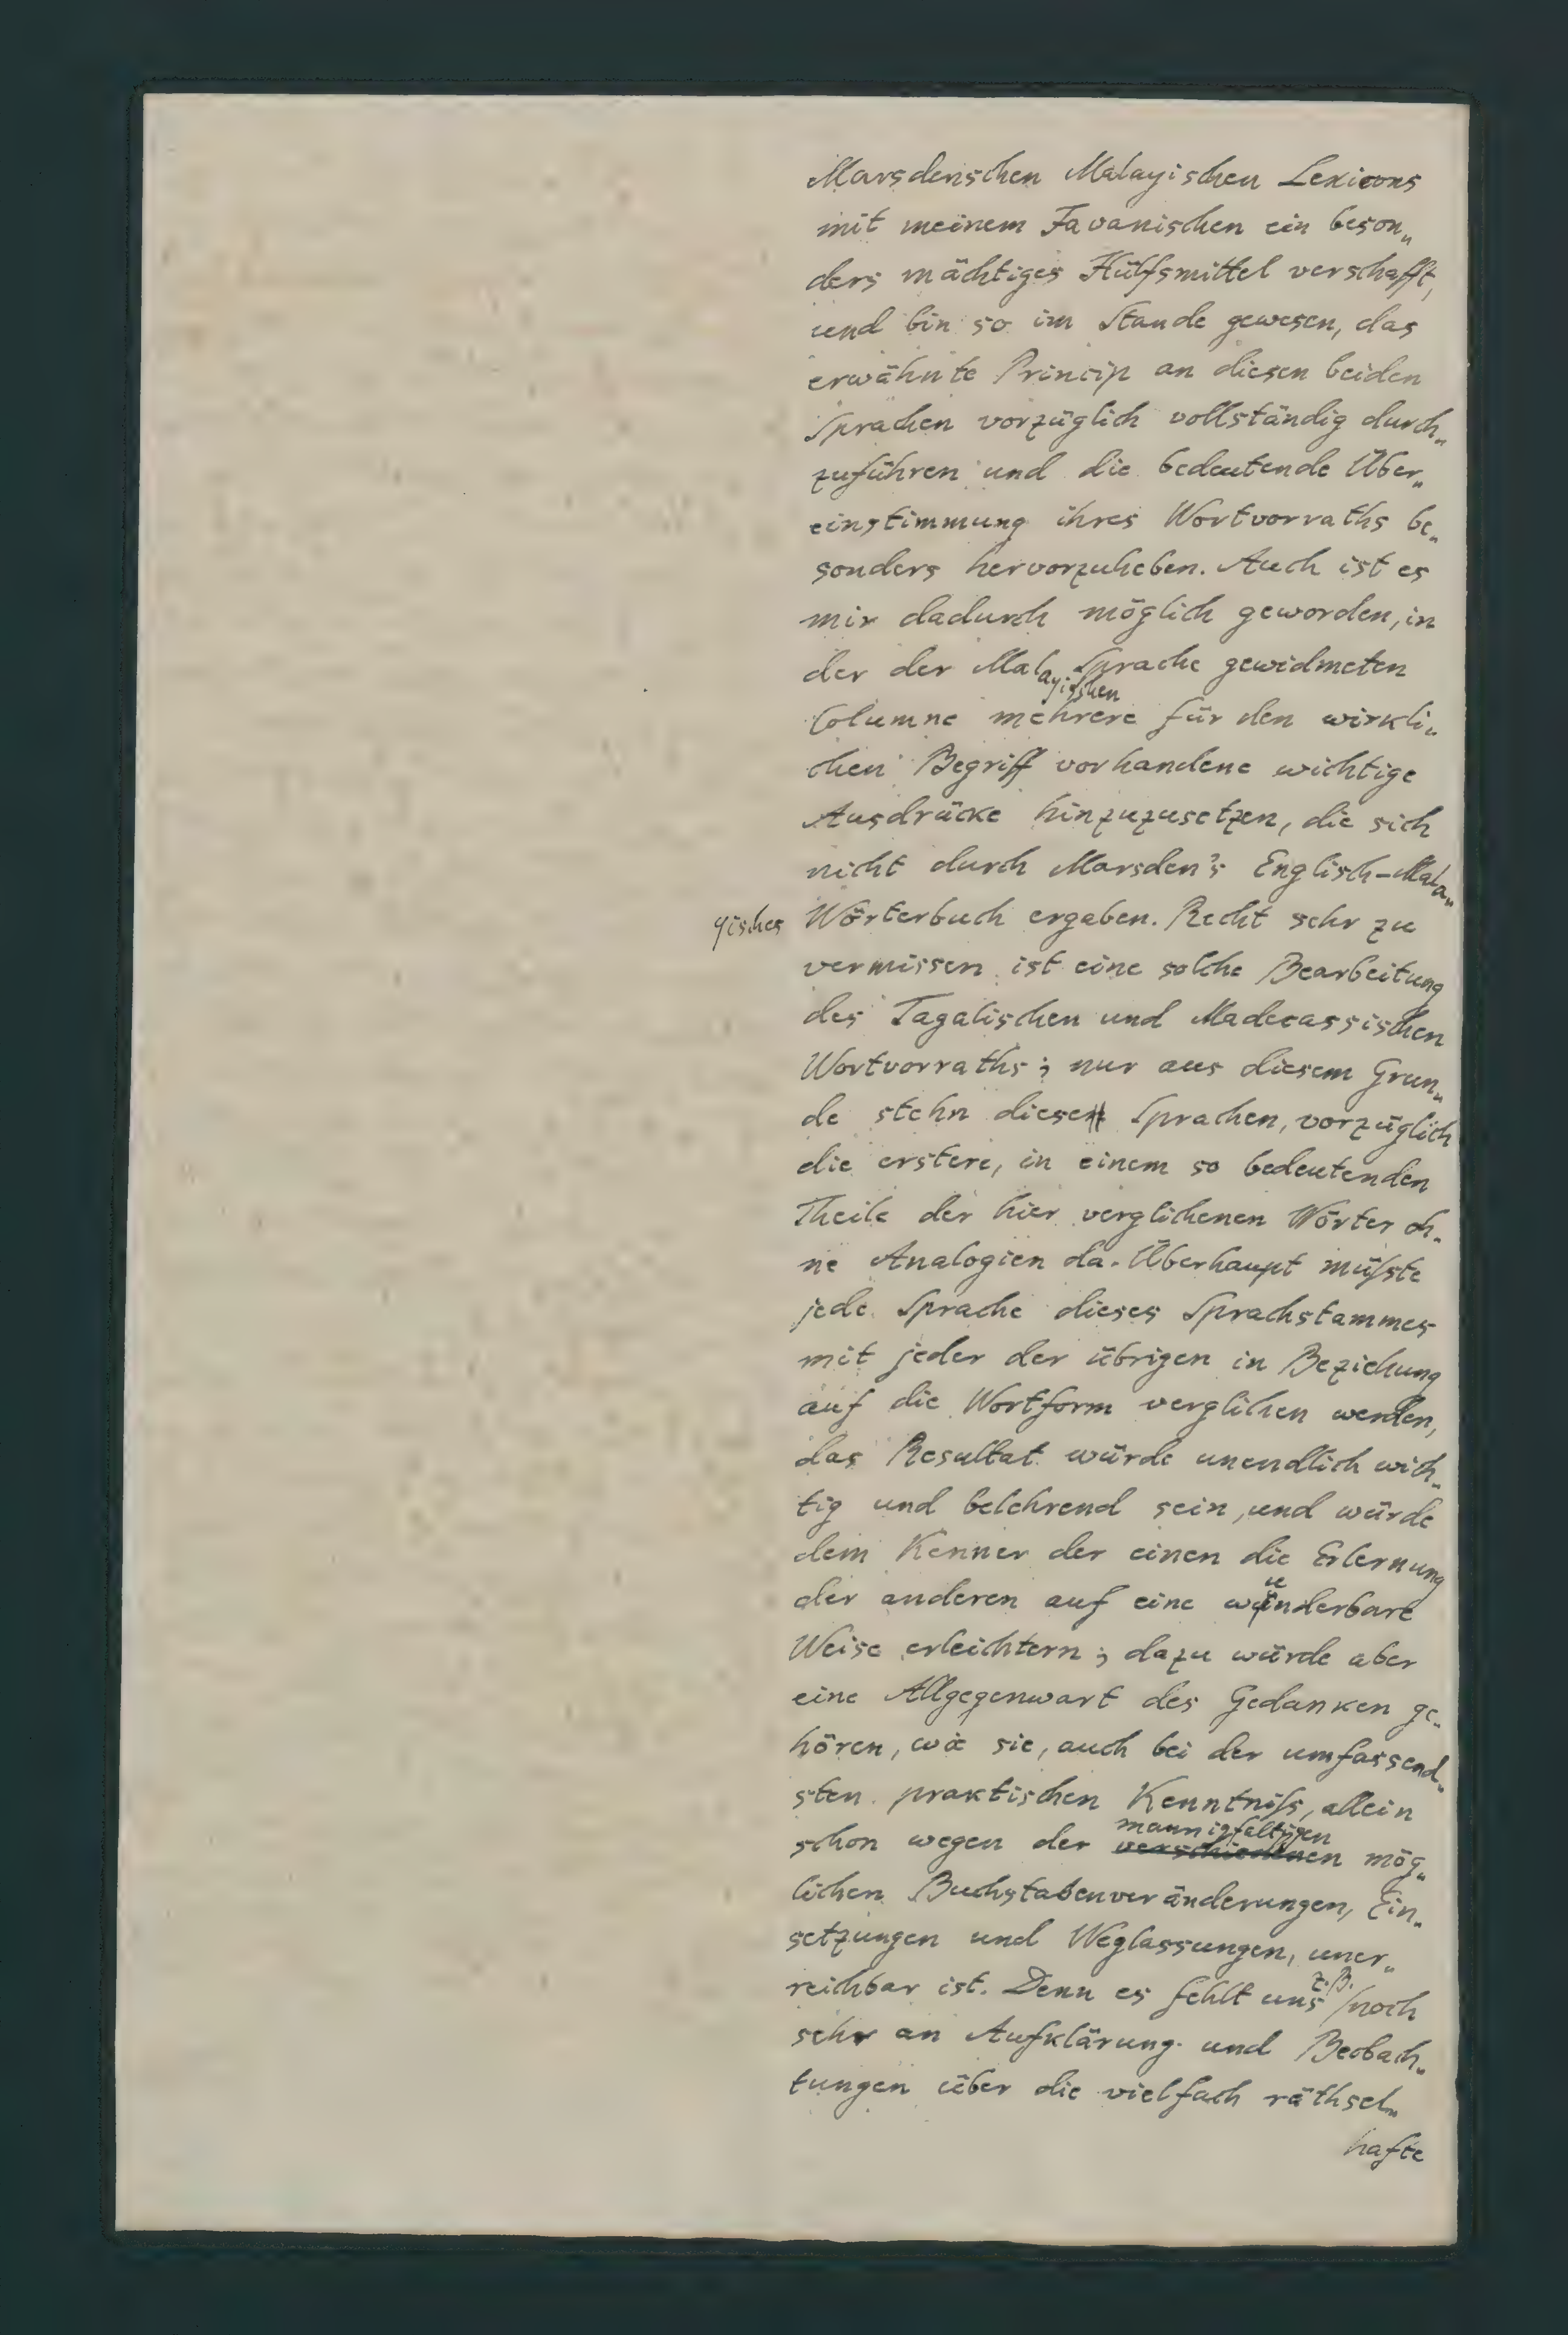 Marsdenschen Malayischen Lexicons
mit meinem Javanischen ein beson„
ders mächtiges Hülfsmittel verschafft,
und bin so im Stande gewesen, das
erwähnte Princip an diesen beiden
Sprachen vorzüglich vollständig durch„
zuführen und die bedeutende Über„
einstimmung ihres Wortvorraths be„
sonders hervorzuheben. Auch ist es
mir dadurch möglich geworden, in
der der Malayischen Sprache gewidmeten
Columne mehrere für den wirkli„
chen Begriff vorhandene wichtige
Ausdrücke hinzuzusetzen, die sich
nicht durch Marsden's Englisch-Mala„
yisches Wörterbuch ergaben. Recht sehr zu
vermissen ist eine solche Bearbeitung
des Tagalischen und Madecassischen
Wortvorraths; nur aus diesem Grun„
de stehn diesen Sprachen, vorzüglich
die erstere, in einem so bedeutenden
Theile der hier verglichenen Wörter oh„
ne Analogien da. Überhaupt müſste
jede Sprache dieses Sprachstammes
mit jeder der übrigen in Beziehung
auf die Wortform verglichen werden,
das Resultat würde unendlich wich„
tig und belehrend sein, und würde
dem Kenner der einen die Erlernung
der anderen auf eine wunderbare
Weise erleichtern; dazu würde aber
eine Allgegenwart des Gedanken ge„
hören, wie sie, auch bei der umfassend„
sten praktischen Kenntniſs, allein
mannigfaltigen
schon wegen der verschiedenen mög„
lichen Buchstabenveränderungen, Ein„
setzungen und Weglassungen, uner„
reichbar ist. Denn es fehlt uns z.B. noch
sehr an Aufklärung und Beobach„
tungen über die vielfach räthsel„
hafte